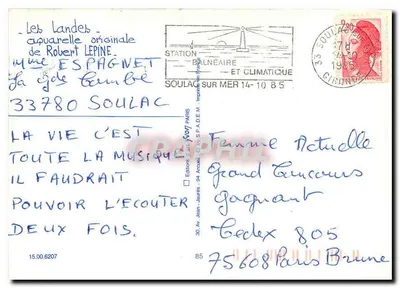 Les Landes
aquarelle originale
de Robert LEPINE.
Mme ESPAGNET
33780 SOULAC
LA VIE C'EST
TOUTE LA MUSIQUE
IL FAUDRAIT
POUVOIR L'ECOUTER
DEUX FOIS.
15.00.6207
STATION
BALNÉAIRE
ET CLIMATIQUE
SOULAC SUR MER 14-10 85
33 SOULAC
GIRONDE
85
Femme Actuelle
Grand Concours
Gagnant
Cedex 805
75608 Paris Brune